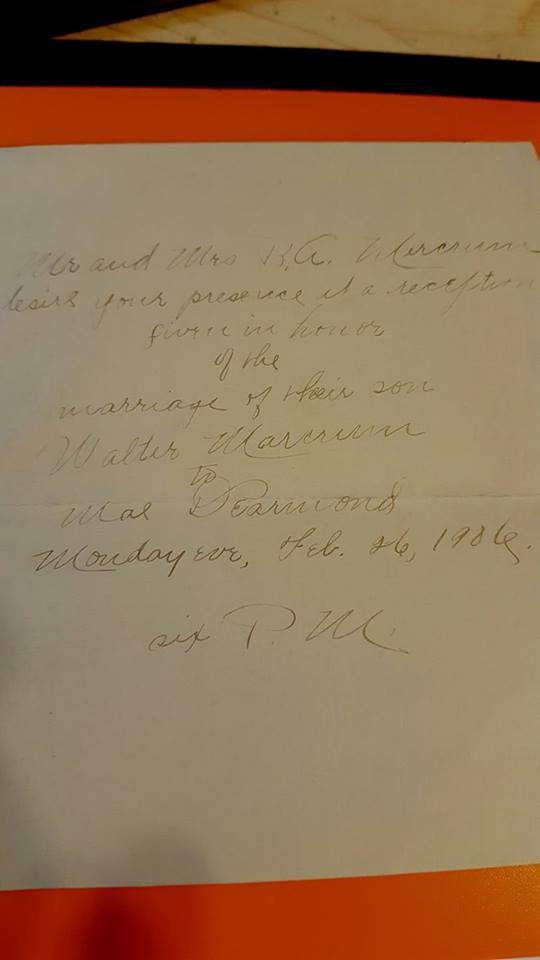 Mr and Mrs K.A. Marcrum
desire your presence at a reception
given in honor
of the
marriage of their son
Walter Marcrum
to
Mae DEarmond
Monday eve, Feb. 26, 1906.
six P.M.